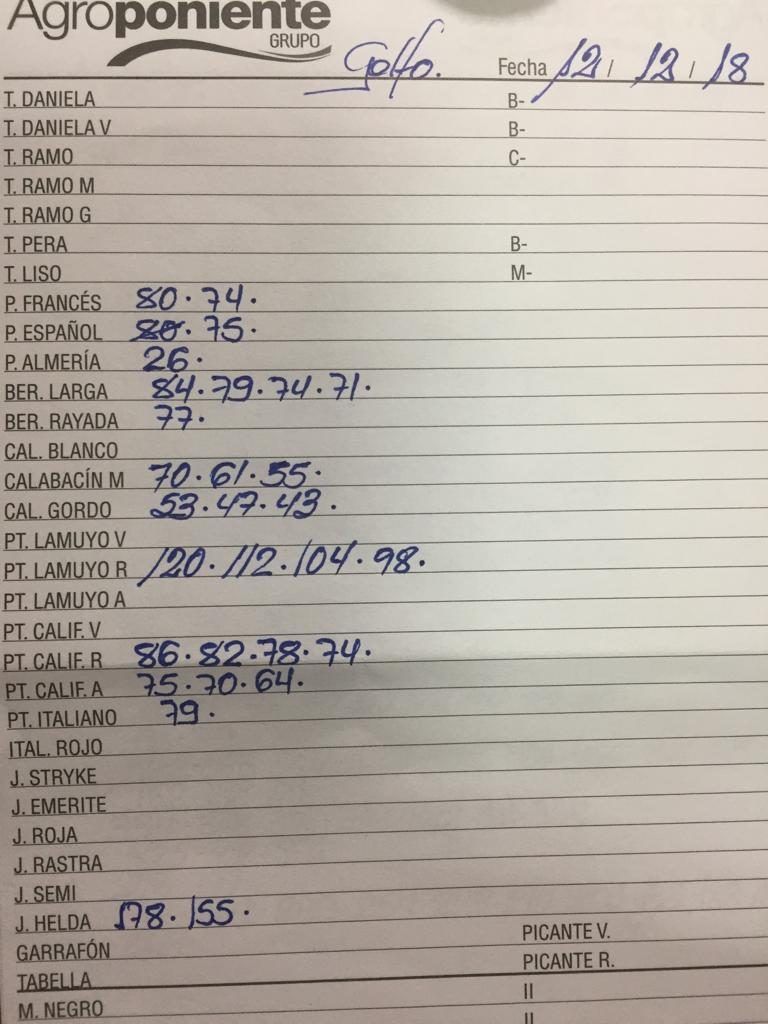 Agroponiente
GRUPO
Golfo. Fecha 12 / 12 / 18
T. DANIELA B-
T. DANIELA V B-
T. RAMO C-
T. RAMO M
T. RAMO G
T. PERA B-
T. LISO M-
P. FRANCÉS 80. 74.
P. ESPAÑOL 80. 75.
P. ALMERÍA 26.
BER. LARGA 84. 79. 74. 71.
BER. RAYADA 77.
CAL. BLANCO
CALABACÍN M 70. 61. 55.
CAL. GORDO 53. 47. 43.
PT. LAMUYO V
PT. LAMUYO R 120. 112. 104. 98.
PT. LAMUYO A
PT. CALIF. V
PT. CALIF. R 86. 82. 78. 74.
PT. CALIF. A 75. 70. 64.
PT. ITALIANO 79.
ITAL. ROJO
J. STRYKE
J. EMERITE
J. ROJA
J. RASTRA
J. SEMI
J. HELDA 178. 155.
GARRAFÓN PICANTE V.
TABELLA PICANTE R.
M. NEGRO II
II